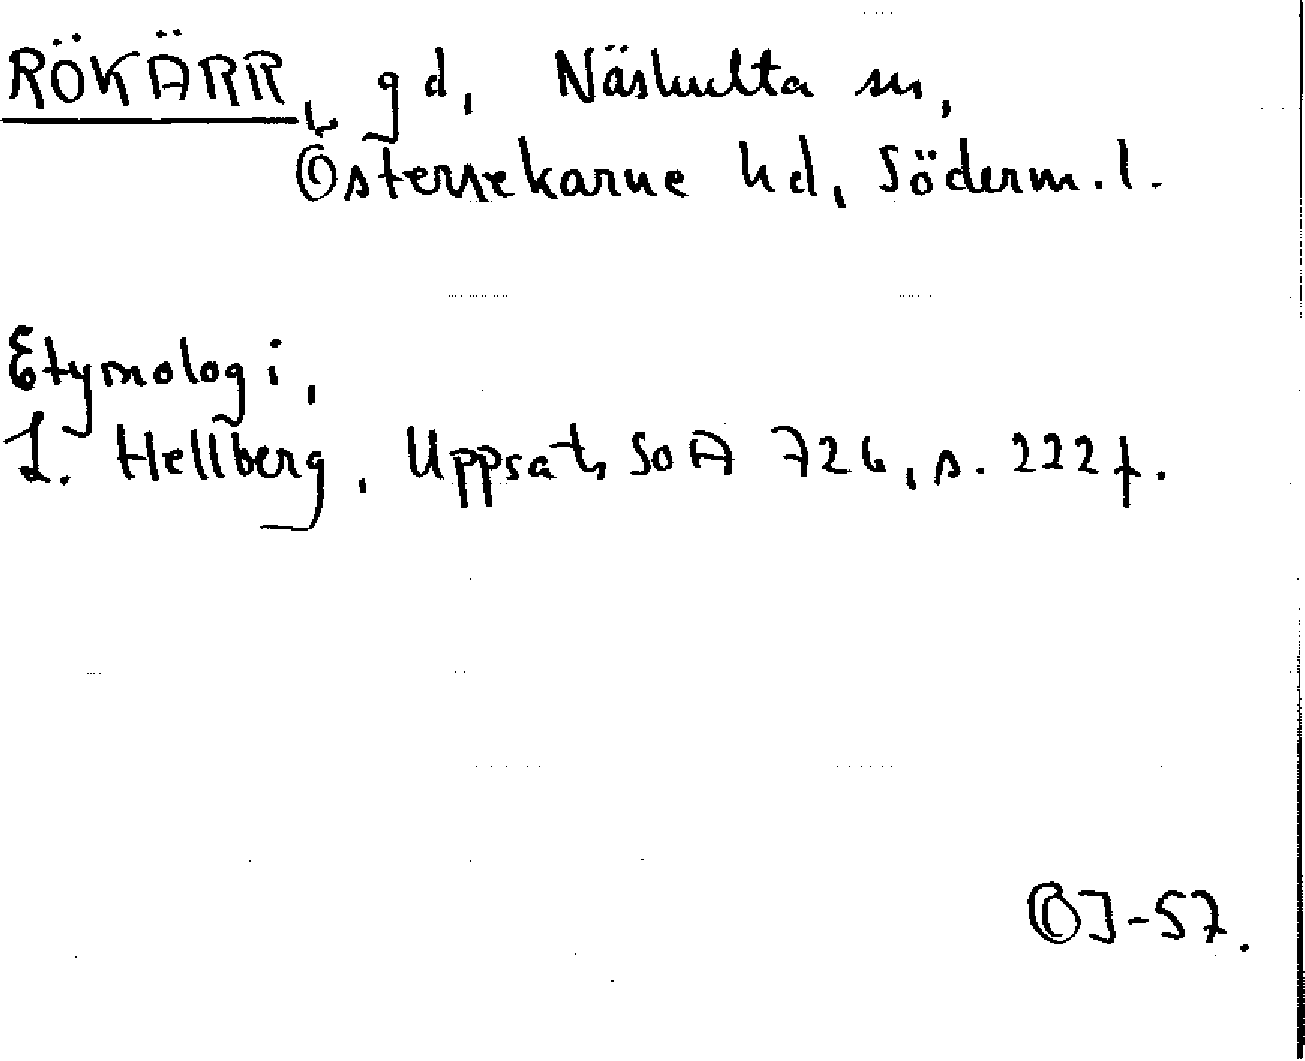 RÖKÄRR, gd, Näshulta sn,
Österrekarne hd, Söderm. l.
Etymologi,
L. Hellberg, Uppsats SOA 726, s. 222 f.
OJ-57.